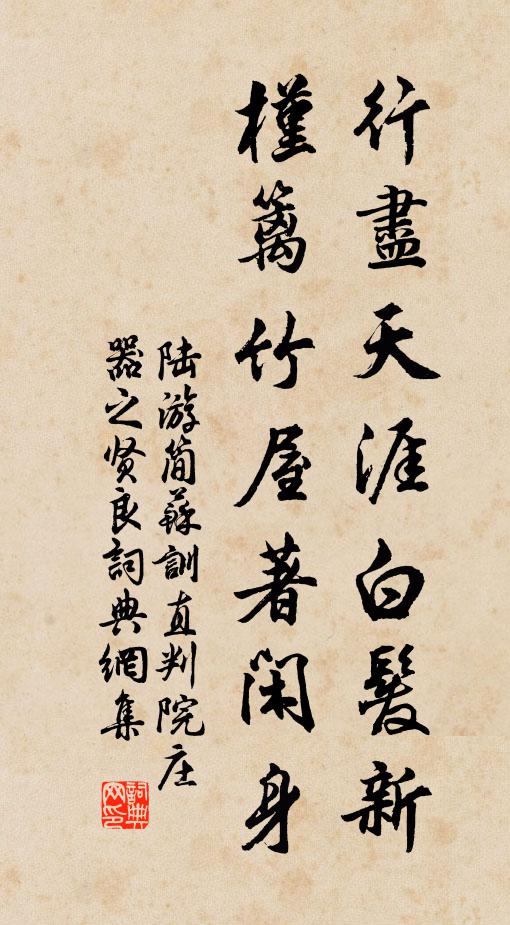 行盡天涯白髮新
槿籬竹屋著閑身
陆游简蘇訓直判院庄
器之贤良詞典網集
詞典
网印